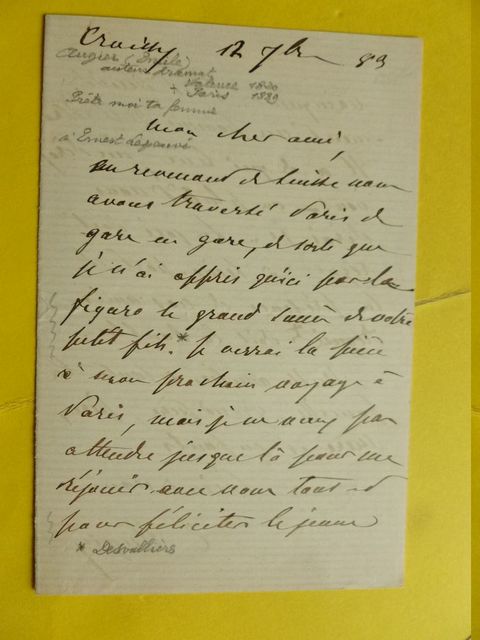 Croissy 12 7bre 83
Augier (Emile)
auteur dramat
Valence 1820
+ Paris 1889
Prête moi ta femme
à Ernest Legouvé
mon cher ami,
en revenant de Suisse nous
avons traversé Paris de
gare en gare, de sorte que
je n'ai appris qu'ici par le
figaro le grand succès de votre
petit fils.* Je verrai la pièce
à mon prochain voyage à
Paris, mais je ne veux pas
attendre jusque là pour me
réjouir avec vous tous et
pour féliciter le jeune
* Desvallières